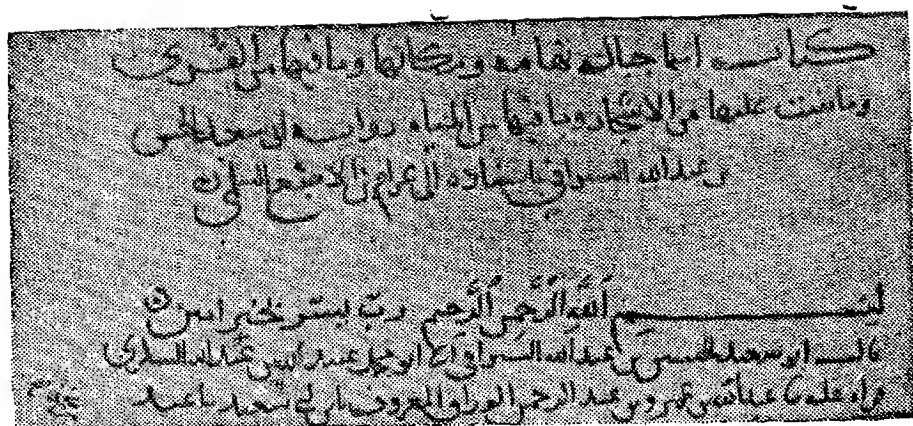 كتاب اسما جبال تهامه وسكانها وما فيها من القرى
وما ينبت عليها من الاشجار وما فيها من المياه روايه ابي سعيد الحسن
بن عبد الله السيرافي باسناده الى عرام بن الاصبغ السلمى
بسم الله الرحمن الرحيم رب يسر بخير امين
قال ابو سعيد الحسن بن عبد الله السيرافي ابو محمد عبيد الله بن عبد الله السكري
قراه عليه عبد الله بن عمرو بن عبد الرحمن الوراق المعروف بابن ابي سعيد